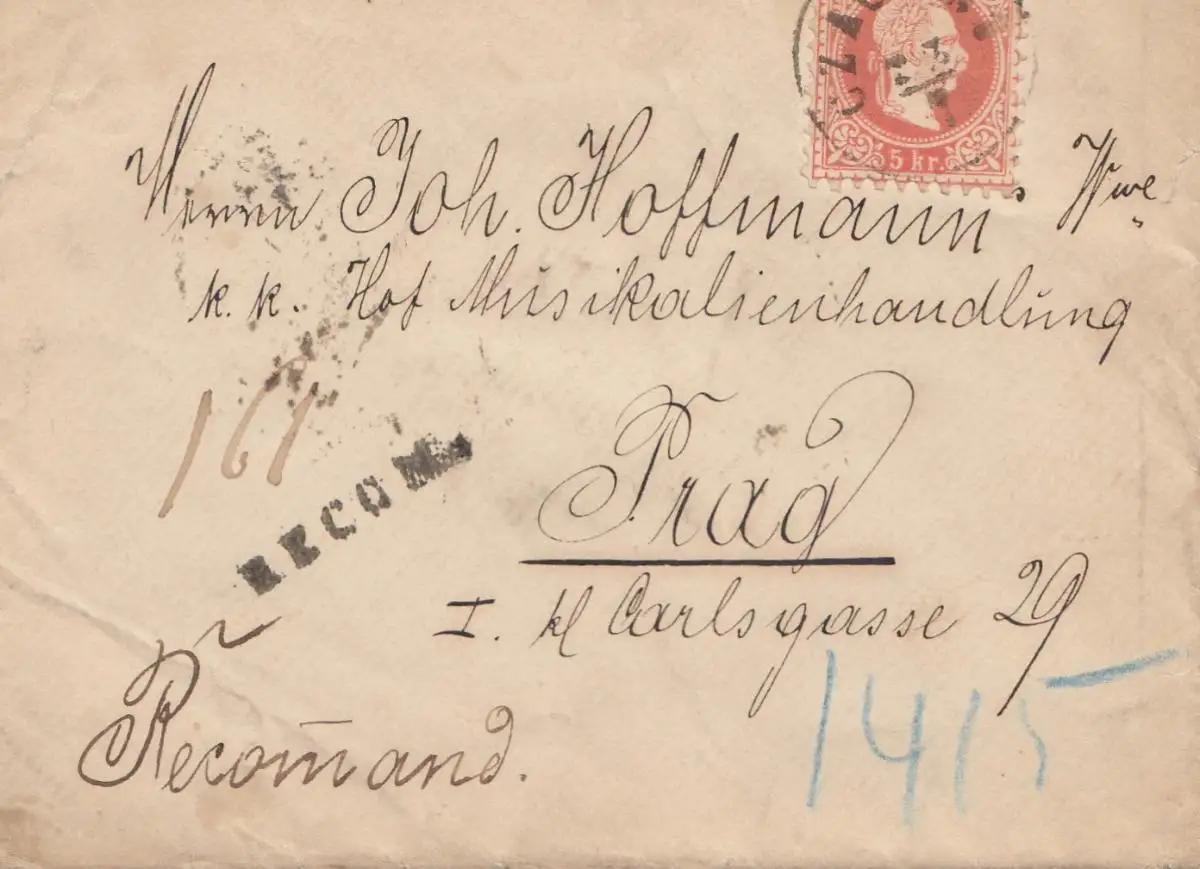 5 kr.
Herrn Joh. Hoffmann's Wwe
k. k. Hof Musikalienhandlung
161
Prag
RECOM.
I. kl Carlsgasse 29
1415
Recom̄and.